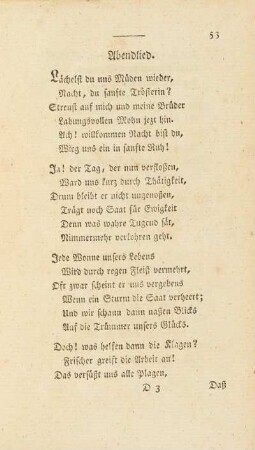 53
Abendlied.
Lächelst du uns Müden wieder,
Nacht, du sanfte Trösterin?
Streust auf mich und meine Brüder
Labungsvollen Mohn jezt hin.
Ach! willkommen Nacht bist du,
Wieg uns ein in sanfte Ruh!
Ja! der Tag, der nun verstoßen,
Ward uns kurz durch Thätigkeit,
Drum bleibt er nicht ungenoßen,
Trägt noch Saat für Ewigkeit
Denn was wahre Tugend sät,
Nimmermehr verlohren geht.
Jede Wonne unsers Lebens
Wird durch regen Fleiß vermehrt,
Oft zwar scheint er uns vergebens
Wenn ein Sturm die Saat verheert;
Und wir schaun dann naßen Blicks
Auf die Trümmer unsers Glücks.
Doch! was helfen dann die Klagen?
Frischer greift die Arbeit an!
Das versüßt uns alle Plagen,
D 3
Daß